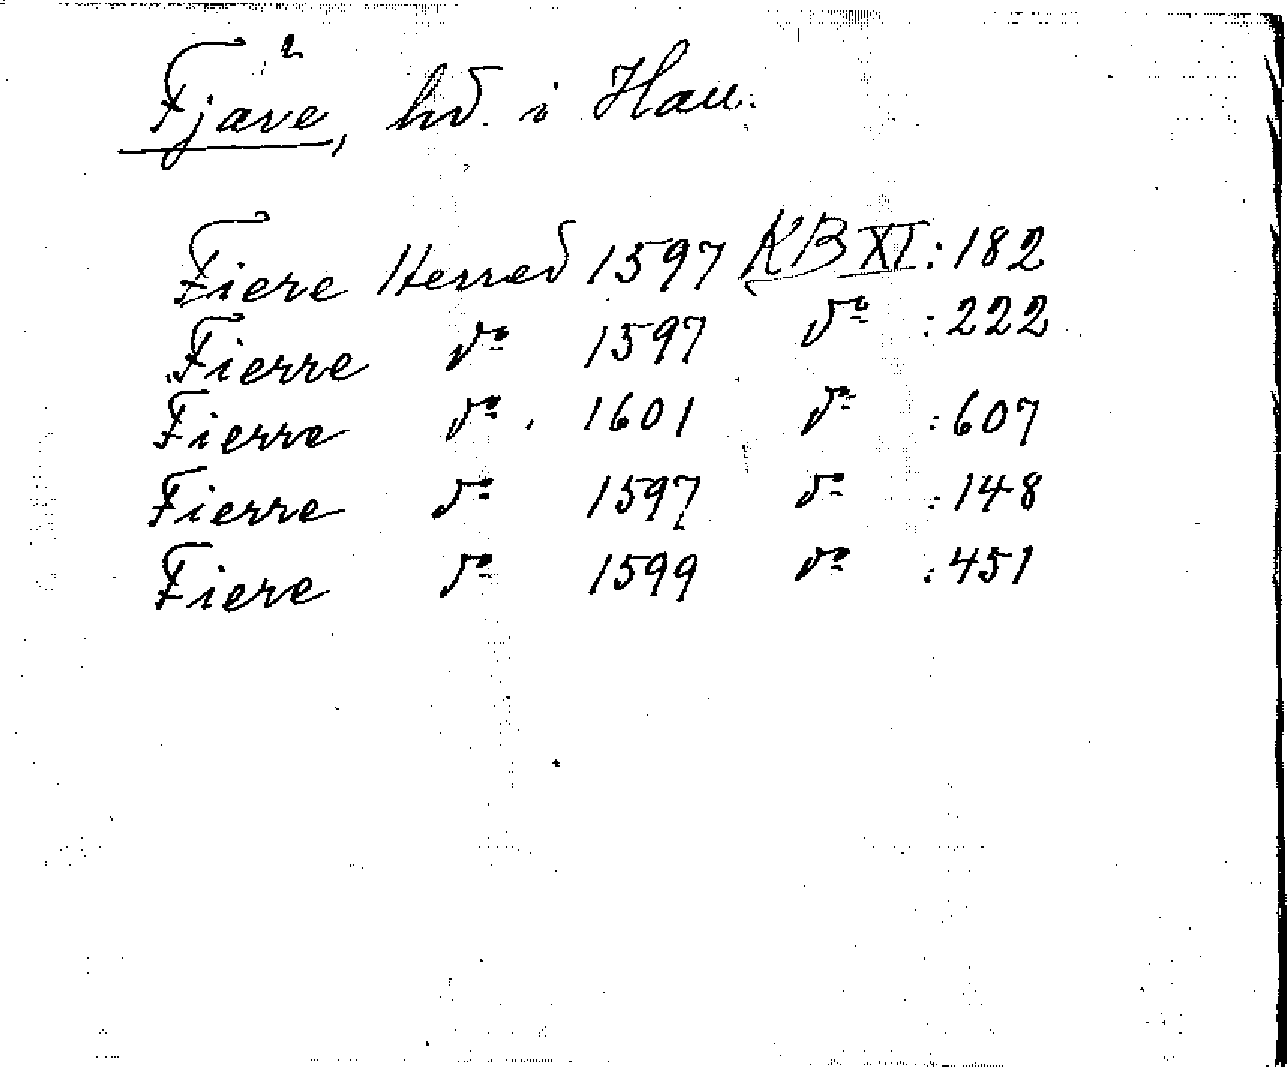 Fjäre, hd. i Hall.
Fiere Herred 1597 KB XI: 182
Fierre dº 1597 dº : 222
Fierre dº. 1601 dº : 607
Fierre dº 1597 dº : 148
Fiere dº 1599 dº : 451